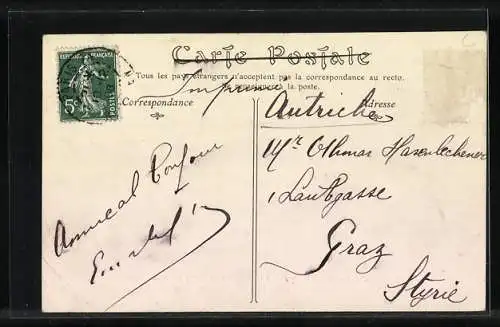 Carte Postale
Tous les pays étrangers n'acceptent pas la correspondance au recto.
à la poste.
Correspondance
Adresse
Imprimé
Autriche
REPUBLIQUE FRANÇAISE
5c
POSTES
Amical Bonjour
Mr Othmar Hasenlechener
1 Laubgasse
Graz
Styrie